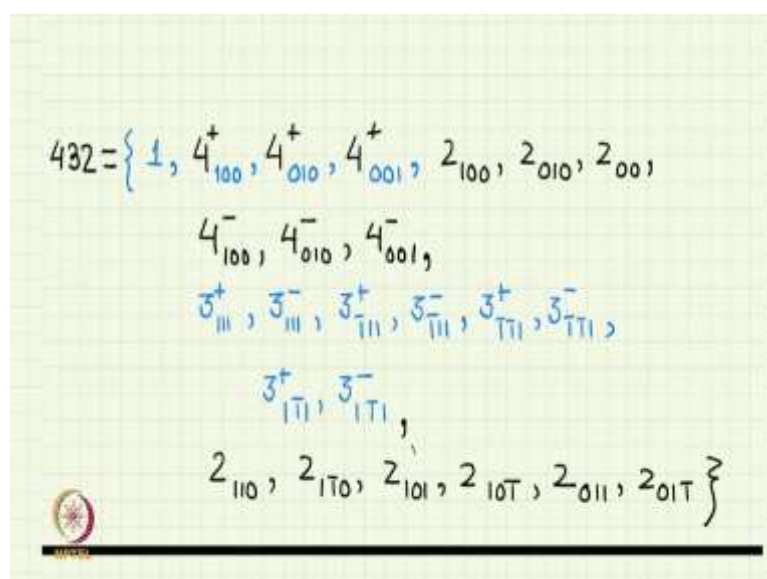 432={1, 4⁺₁₀₀, 4⁺₀₁₀, 4⁺₀₀₁, 2₁₀₀, 2₀₁₀, 2₀₀₁
4⁻₁₀₀, 4⁻₀₁₀, 4⁻₀₀₁,
3⁺₁₁₁, 3⁻₁₁₁, 3⁺₁̅₁₁, 3⁻₁̅₁₁, 3⁺₁̅₁̅₁, 3⁻₁̅₁̅₁,
3⁺₁₁̅₁, 3⁻₁₁̅₁,
2₁₁₀, 2₁₁̅₀, 2₁₀₁, 2₁₀₁̅, 2₀₁₁, 2₀₁₁̅}
NPTEL